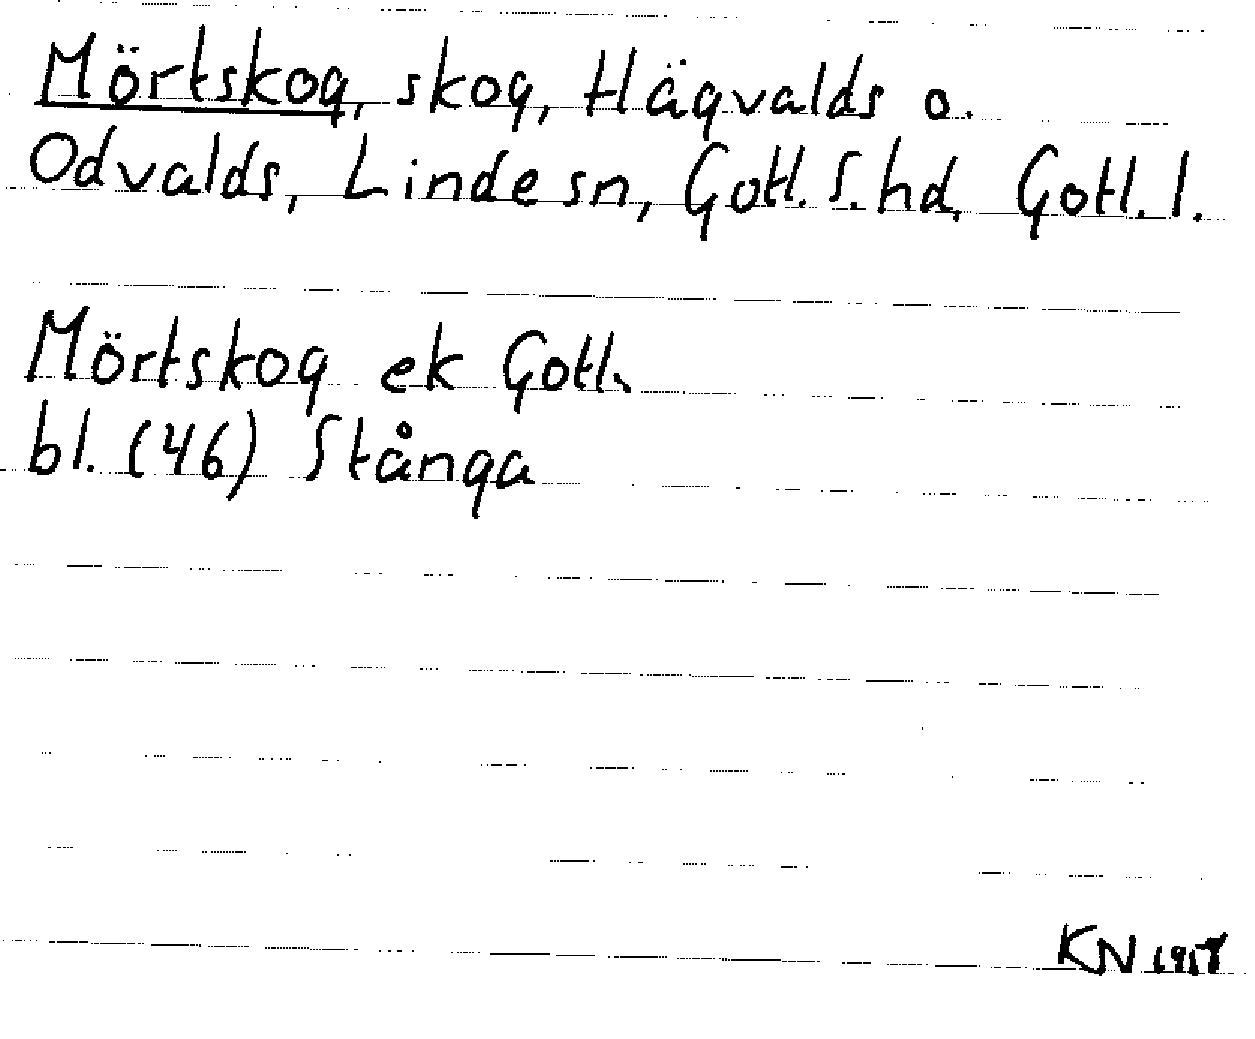 Mörtskog, skog, Hägvalds o.
Odvalds, Linde sn, Gotl. S. hd. Gotl. l.
Mörtskog ek Gotl.
bl. (46) Stånga
KN